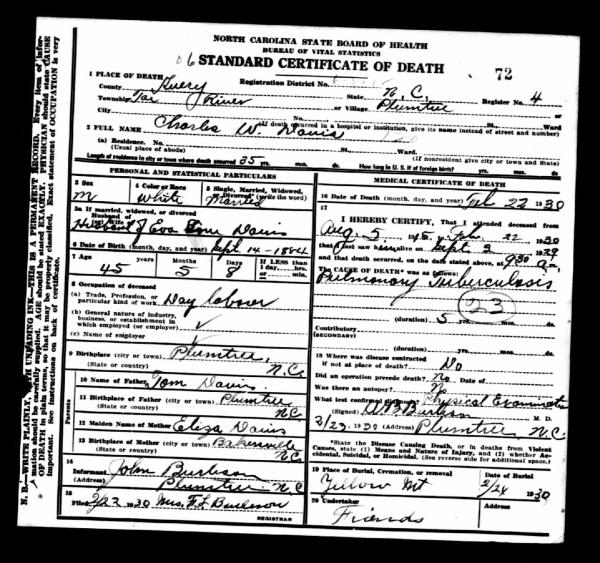 NORTH CAROLINA STATE BOARD OF HEALTH
BUREAU OF VITAL STATISTICS
STANDARD CERTIFICATE OF DEATH
72
1 PLACE OF DEATH
Registration District No.
County Avery State N. C. Register No. 4
Township River or Village Plumtree
City No. St. Ward
(If death occurred in a hospital or institution, give its name instead of street and number)
2 FULL NAME Charles W. Davis
(a) Residence. No. St. Ward.
(Usual place of abode) (If nonresident give city or town and State)
Length of residence in city or town where death occurred 35 yrs. mos. ds. How long in U. S. if of foreign birth? yrs. mos. ds.
PERSONAL AND STATISTICAL PARTICULARS
3 Sex M
4 Color or Race White
5 Single, Married, Widowed, or Divorced (write the word) Married
5a If married, widowed, or divorced
Husband of
(or) Wife of
Husband of Eva Davis
6 Date of Birth (month, day, and year) Sept. 14-1884
7 Age 45 years 5 Months 8 Days If LESS than 1 day, hrs. or min.
8 Occupation of deceased
(a) Trade, Profession, or particular kind of work Day labour
(b) General nature of industry, business, or establishment in which employed (or employer)
(c) Name of employer
9 Birthplace (city or town) Plumtree,
(State or country) N.C.
Parents
10 Name of Father Tom Davis
11 Birthplace of Father (city or town) Plumtree
(State or country) N.C.
12 Maiden Name of Mother Eliza Davis
13 Birthplace of Mother (city or town) Bakersville
(State or country) N.C.
14
Informant John Burleson
(Address) Plumtree N.C
15
Filed 2/23 1930 Mrs. Burleson
REGISTRAR
MEDICAL CERTIFICATE OF DEATH
16 Date of Death (month, day, and year) Feb 22 1930
17
I HEREBY CERTIFY, That I attended deceased from
Aug. 5 to Feb. 22 1930
that I last saw alive on Sept 2 1929
and that death occurred, on the date stated above, at 9:30 a m.
The CAUSE OF DEATH* was as follows:
Pulmonary Tuberculosis
23
(duration) 5 yrs. mos. ds.
Contributory
(SECONDARY)
(duration) yrs. mos. ds.
18 Where was disease contracted
if not at place of death? No
Did an operation precede death? No Date of
Was there an autopsy? No
What test confirmed diagnosis? Physical Examination
(Signed) Burleson M. D.
2/23 1930 (Address) Plumtree N.C.
*State the Disease Causing Death, or in deaths from Violent Causes, state (1) Means and Nature of Injury, and (2) whether Accidental, Suicidal, or Homicidal. (See reverse side for additional space.)
19 Place of Burial, Cremation, or removal Yellow Mt
Date of Burial 2/24 1930
20 Undertaker Friends
Address
N. B.—WRITE PLAINLY, WITH UNFADING INK—THIS IS A PERMANENT RECORD. Every item of information should be carefully supplied. AGE should be stated EXACTLY. PHYSICIAN should state CAUSE OF DEATH in plain terms, so that it may be properly classified. Exact statement of OCCUPATION is very important. See instructions on back of certificate.